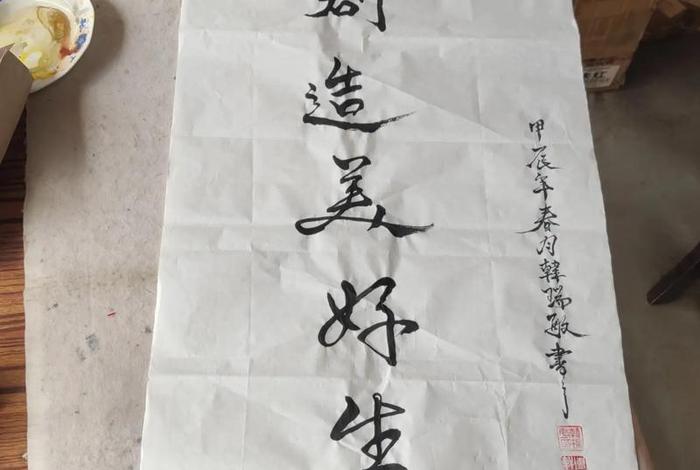 創造美好生
甲辰年春月韓瑞敏書之